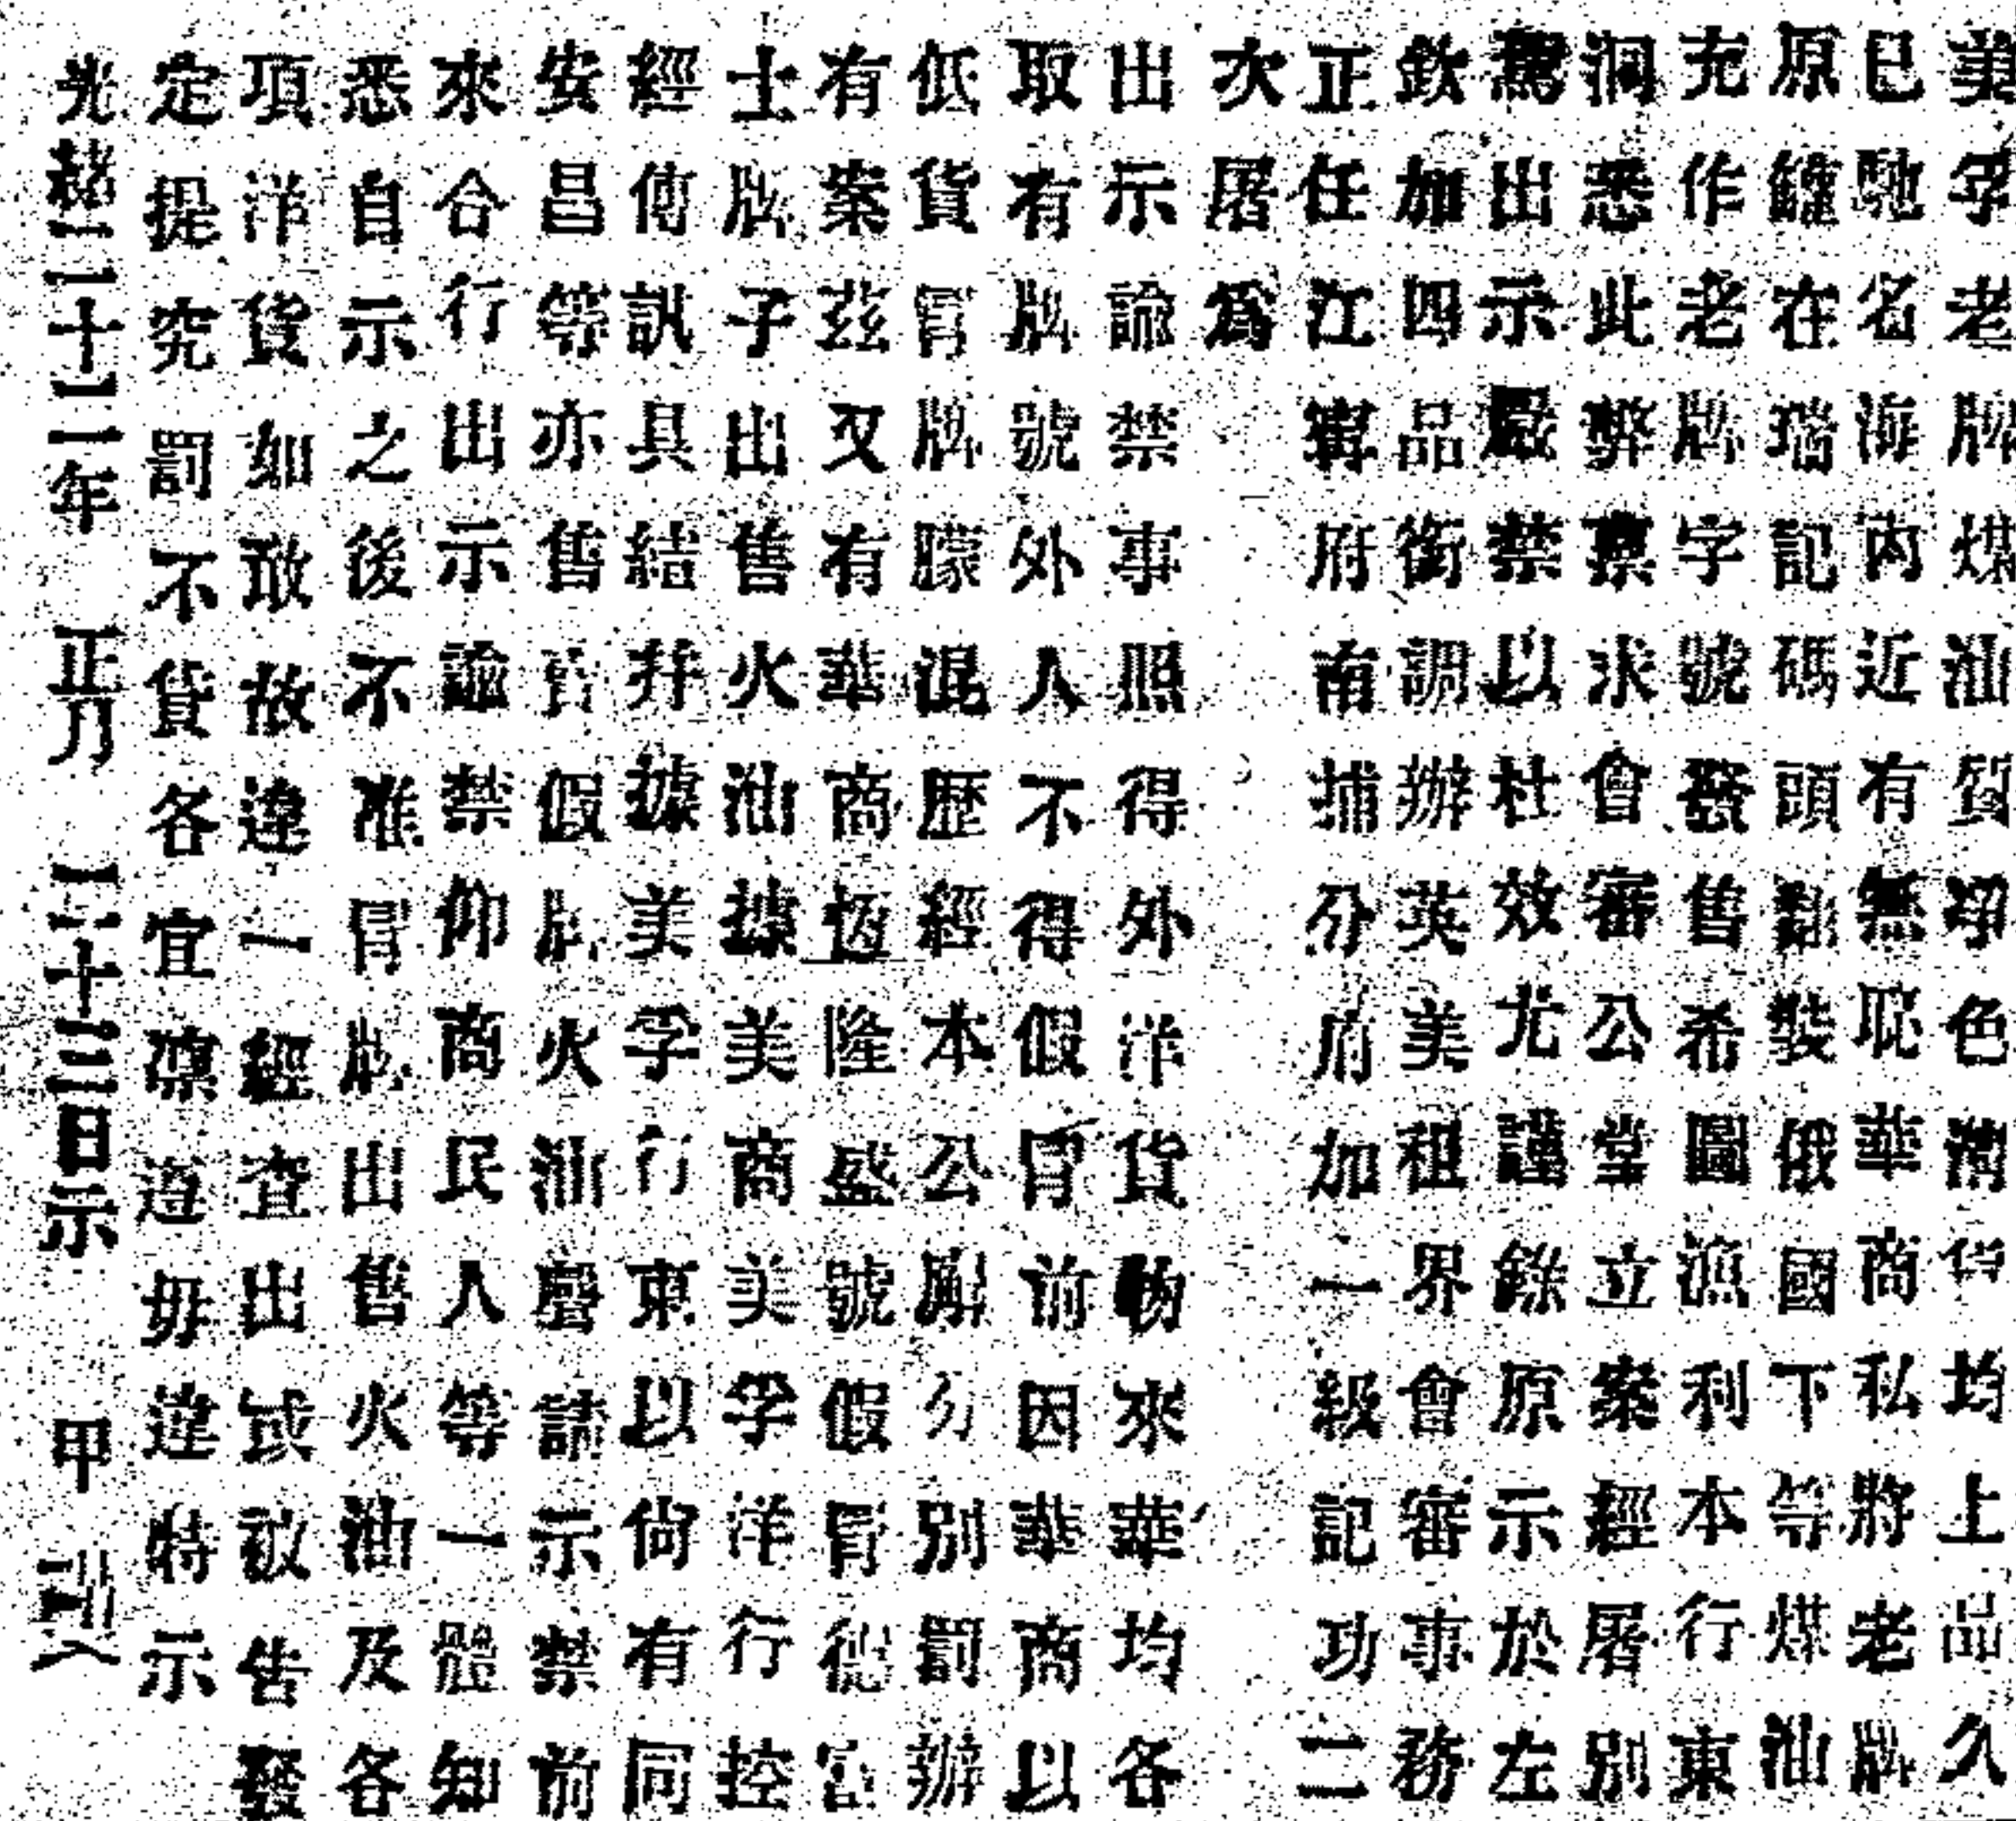 美孚老牌煤油質凈色清貨均上品久
已馳名海內近有無耻華商私將老牌
原鑵在瑞記碼頭翻裝俄國下等煤油
充作老牌字號發售希圖漁利本行東
洞悉此弊稟求會審公堂立案經屠別
駕出示嚴禁以杜效尤謹錄原示於左
欽加四品銜調辦英美租界會審事務
正任江甯府南捕分府加一級記功二
次屠爲
出示諭禁事照得外洋貨物來華均各
取有牌號外人不得假冐前因華商以
低貨冒牌朦混歷經本公廨分別罰辦
有案茲又有華商恆隆盛號假冒德富
士牌子出售火油據美商美孚洋行控
經傳訊具結幷據美孚行東以尙有同
安昌等亦售賣假牌火油聲請示禁前
來合行出示諭禁仰商民人等一體知
悉自示之後不准冒牌出售火油及各
項洋貨如敢故違一經查出或被告發
定提究罰不貸各宜凜遵毋違特示
光緒二十二年 正月 二十三日示 甲